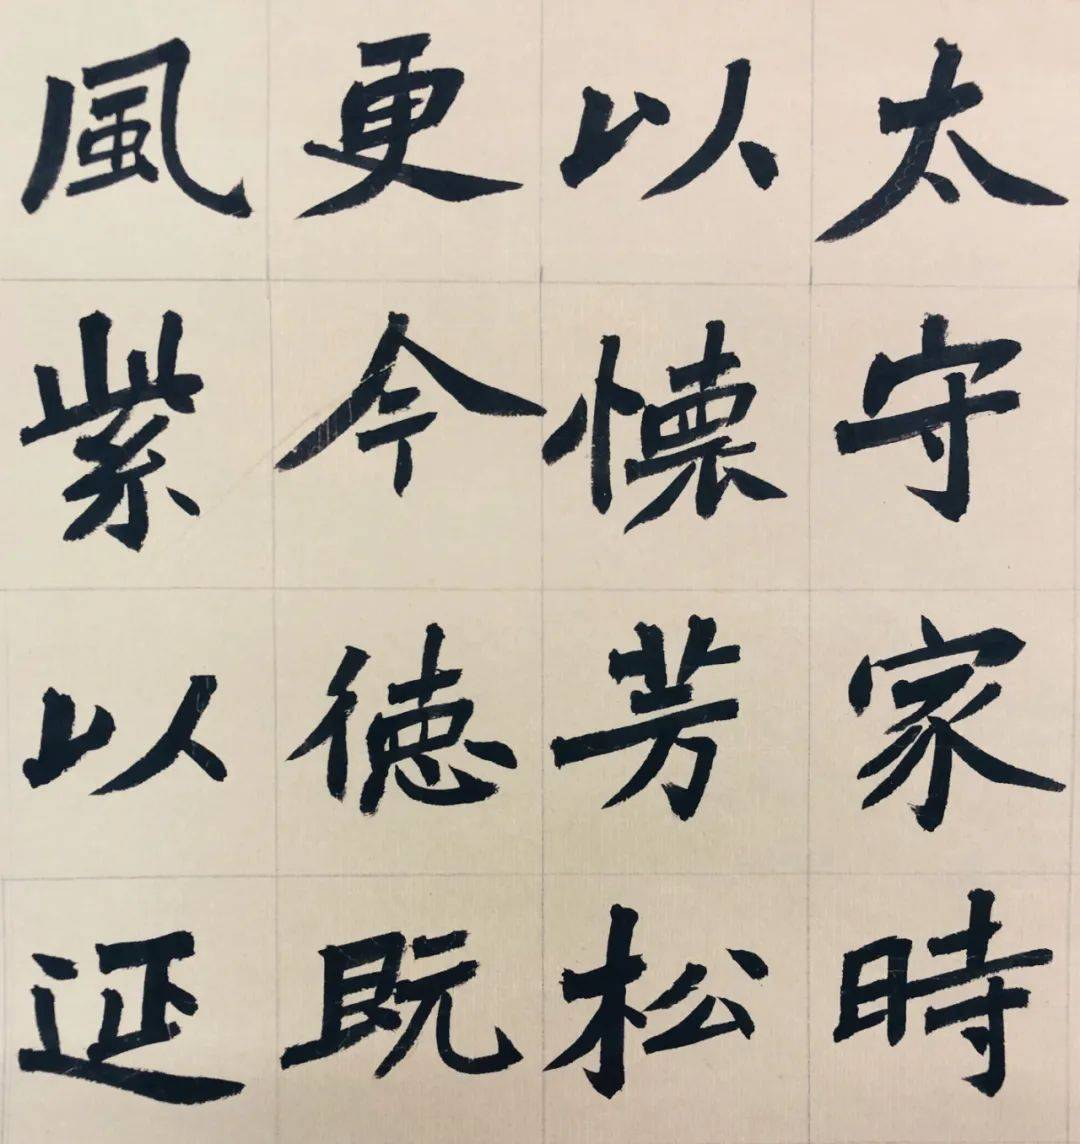 太守家時
以懷芳松
更今德既
風紫以延